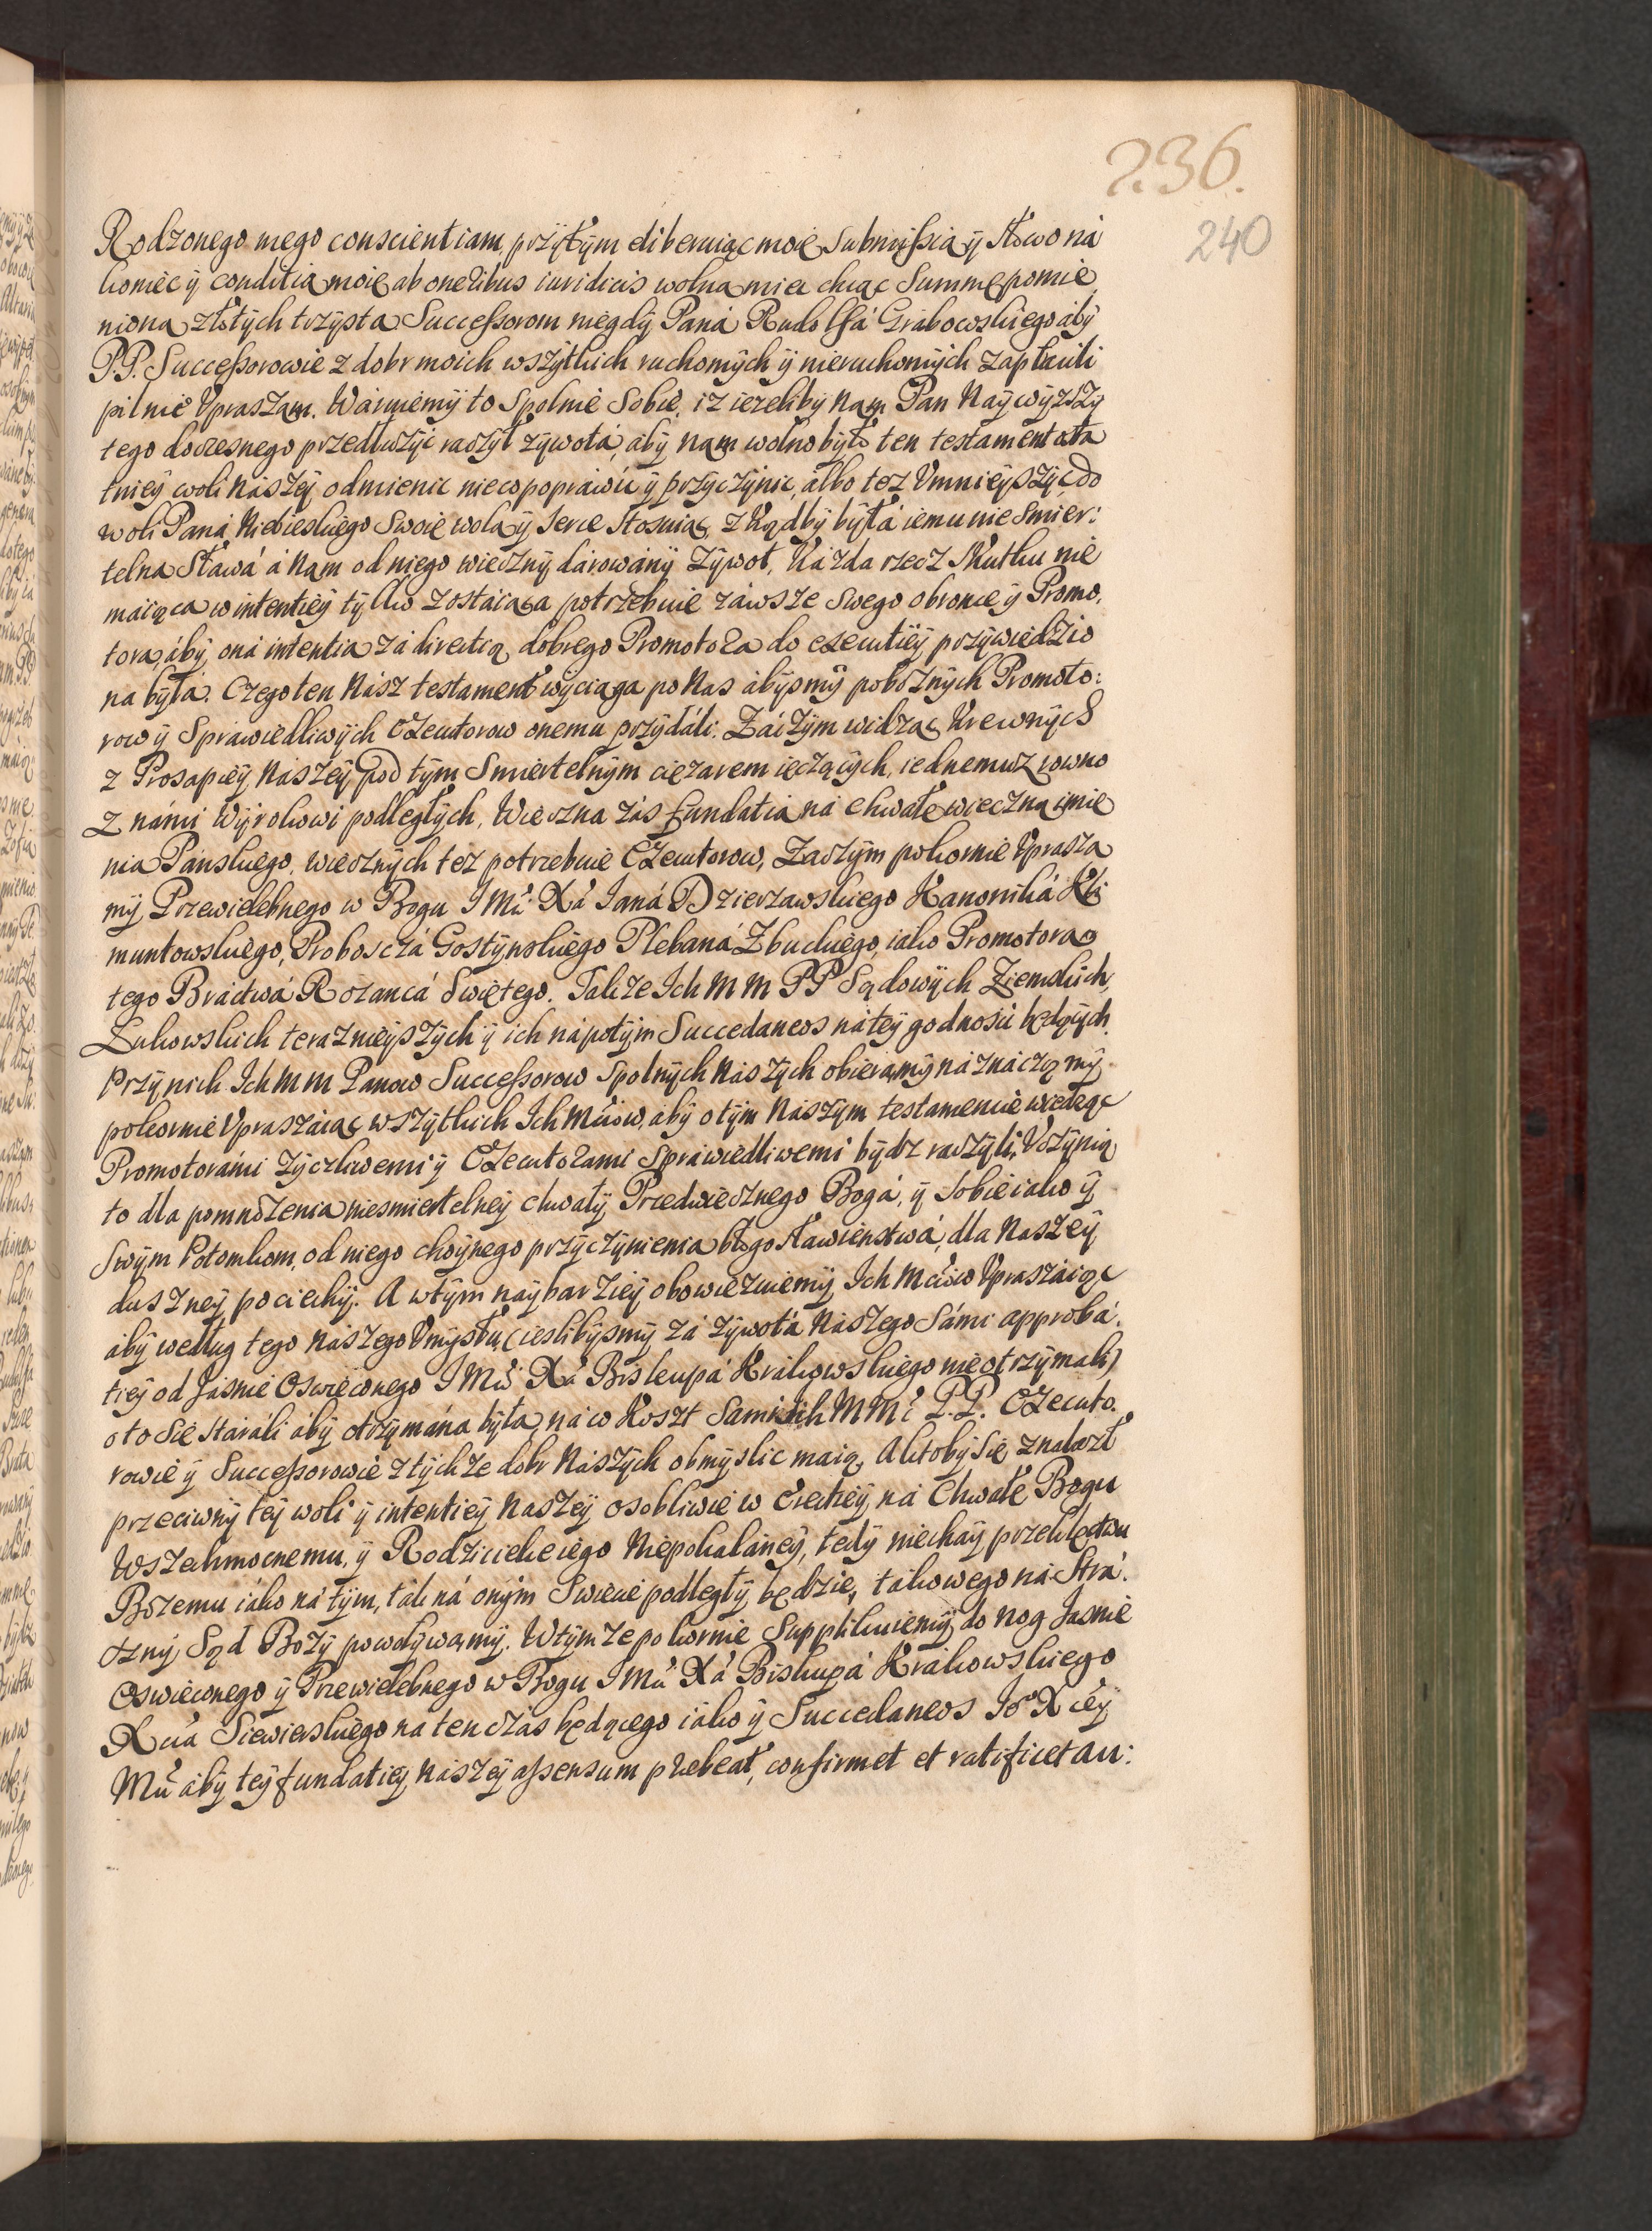 236.
240
Rodzonego mego conscientiam, przytym eliberuiąc moię Submissią ÿ słowo ná
koniec ÿ conditią moię ab oneribus iuridicis wolną miec chcąc Summę pomie
nioną złotÿch trzÿsta Successorom niegdÿ Páná Rudolfá Grábowskiego abÿ
P.P. Successorowie z dobr moich wszÿtkich ruchomÿch ÿ nieruchomÿch zapłacili
pilnie Vpraszam. Wáruiemÿ to Spolnie Sobie, iz iezelibÿ Nąm Pan Naÿwÿzszÿ
tego doczesnego przedłuzÿc raczÿł zÿwotá, abÿ nąm wolno bÿło ten testament osta
tnieÿ woli Nászeÿ odmienic nieco popráwic ÿ przÿczÿnic, álbo tez Vmnieÿszÿc, do
woli Páná Niebieskiego Swoię wolą ÿ Serce Stosuiąc, z kądbÿ bÿłá iemu nie Smier:
telna Sławá á Nąm od niego wiecznÿ dárowánÿ Zÿwot, Kázda rzecz Skutku nie
maiąca w intentieÿ tÿlko zostaiąca potrzebuie záwsze Swego obroncę ÿ Promo,
tora, ábÿ oná intentia zá directią dobrego Promotora do exekutieÿ przÿwiedzio
na bÿłá. Czego ten Nász testament wÿciąga po Nas ábÿsmÿ poboznÿch Promoto:
row ÿ Spráwiedliwÿch Exeutorow onemu przÿdáli. Záczÿm widząc Krewnÿch
z Prosapieÿ Nászeÿ pod tÿm Smiertelnÿm cięzarem ięczącÿch, iednemuz rowno
z námi Wÿrokowi podległÿch, Wieczna zás fundatia ná chwałę wieczną imie
nia Pánskiego, wiecznÿch tez potrzebuie Exeutorow, Zaczÿm pokornie Vprasza
mÿ Przewielebnego w Bogu IMci Xá Janá Dzierzawskiego Kanoniká Kli
muntowskiego, Proboszczá Gostÿnskiego Plebaná Zbuckiego, iako Promotora
tego Bráctwá Rozáncá Swiętego. Takze Ich MM PP Sądowÿch Ziemskich,
Łukowskich teraznieÿszÿch ÿ ich nápotÿm Succedaneos ná teÿ godnosci będącÿch.
Przÿ nich Ich MM Panow Successorow Spolnÿch Nászÿch obierąmÿ náznáczą mÿ
pokornie Vpraszáiąc wszÿtkich Ich Mciow, ábÿ o tÿm Nászÿm testamencie wiedząc
Promotorámi zÿczliwemi ÿ Exeutorami Spráwiedliwemi bÿdz raczÿli, Vczÿnią
to dla pomnozenia niesmiertelneÿ chwałÿ Przedwiecznego Bogá, ÿ Sobie iako ÿ
Swÿm Potomkom, od niego choÿnego przÿczÿnienia błogosławienstwá, dla Naszeÿ
duszneÿ pociechÿ. A w tÿm naÿbarzieÿ obowiezuiemÿ Ich Mciow Vpraszáiąc
abÿ według tego Nászego Vmÿsłu, (ieslibÿsmÿ zá zÿwotá Nászego Sámi approbá,
tieÿ od Jásnie Oswieconego IMci Xá Biskupá Krákowskiego nie otrzÿmali)
o to Się Stáráli ábÿ otrzÿmána bÿłá, ná co Koszt Sami Ich MMc P.P. Exeuto.
rowie ÿ Successorowie z tÿchze dobr Nászÿch obmÿslic maią. A ktobÿ Się znalazł
przeciwnÿ teÿ woli ÿ intentieÿ Naszeÿ osobliwie w erectieÿ ná Chwałę Bogu
Wszechmocnemu, ÿ Rodzicielce iego Niepokaláneÿ, tedÿ niechaÿ przeklęctwu
Bozemu iáko ná tÿm, ták ná onÿm Swiecie podległÿ będzie, takowego ná Strá.
sznÿ Sąd Bozÿ powoływąmÿ. W tÿmze pokornie Supplikuiemÿ do nog Jasnie
Oswieconego ÿ Przewielebnego w Bogu IMci Xá Biskupá Krákowskiego
Xcia Siewierskiego na ten czás będącego iako ÿ Succedaneos Jo Xcieÿ
Mci ábÿ teÿ fundatieÿ Nászeÿ assensum præbeat, confirmet et ratificet au: